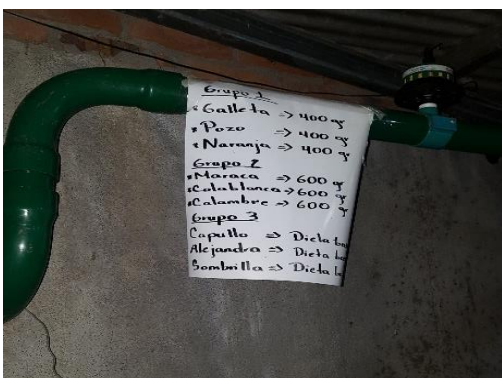 Grupo 1
* Galleta => 400 gr
* Pozo => 400 gr
* Naranja => 400 gr
Grupo 2
* Maraca => 600 gr
* Colablanca => 600 gr
* Calambre => 600 gr
Grupo 3
Capullo => Dieta
Alejandra => Dieta
Sombrilla => Dieta